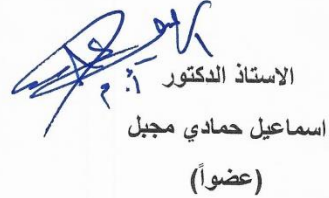 الاستاذ الدكتور
اسماعيل حمادي مجبل
(عضواً)